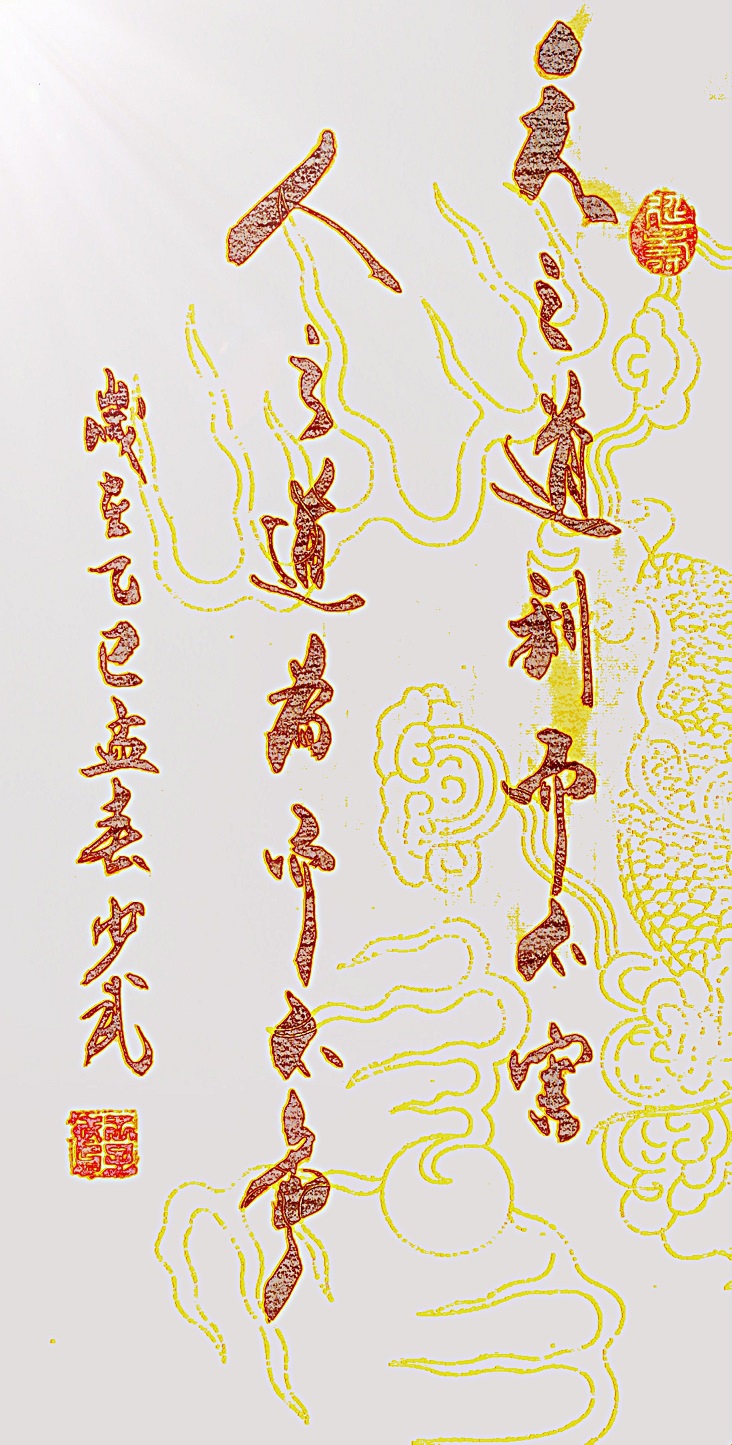 天之道利而不害
人之道為而不爭
歲在乙巳孟春少武